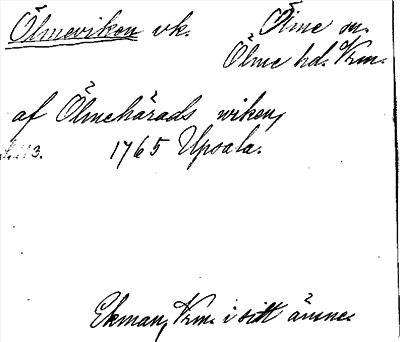 Ölmeviken vk. Ölme sn.
Ölme hd. Vrm.
af Ölmehärads wiken,
s. 113. 1765 Upsala.
Ekman, Vrm. i sitt ämne.